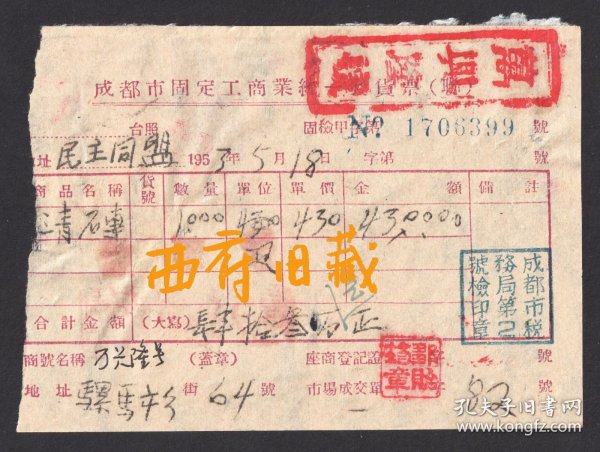 成都市固定工商業 貨票
台照 固檢甲 № 1706399 號
址 民主同盟 1953年5月18日 字第 號
商品名稱 貨號 數量 單位 單價 金額 備註
青石 1000 430 430000
西府旧藏
成都市税務局第2號檢印章
合計金額 (大寫) 肆拾叁万正
商號名稱 万兴隆号 (蓋章) 座商登記證 字 號
地址 騾馬 街 64 號 市場成交單 字 82 號
孔夫子旧书网
www.kongfz.com